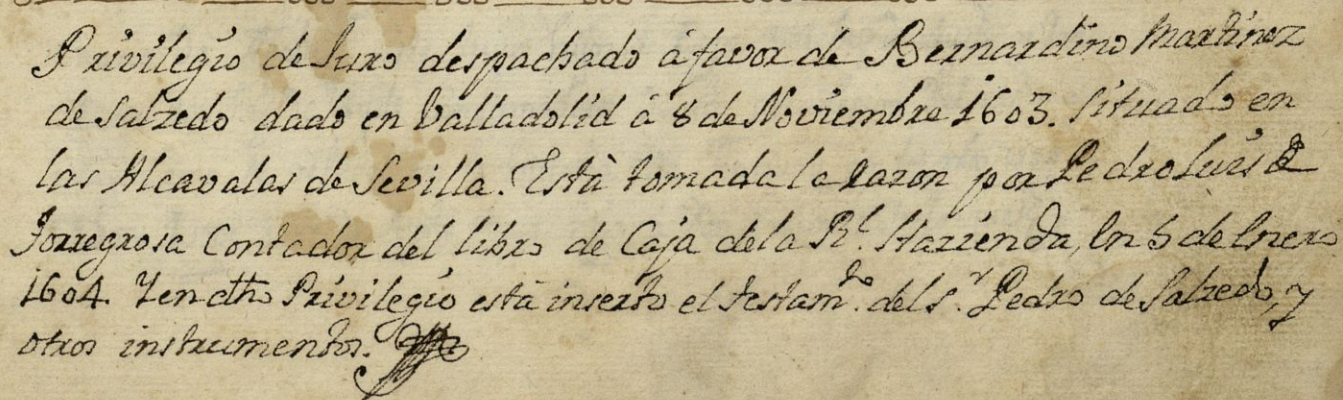 Privilegio de Juro despachado â favor de Bernardino Martinez
de Salzedo dado en Valladolid â 8 de Noviembre 1603. situado en
las Alcavalas de Sevilla. Està tomada la razon por Pedro Luis de
Torregrosa Contador del libro de Caja de la Rl. Hazienda, en 5 de Enero
1604. Y en dho Privilegio està inserto el testamto. del Sr. Pedro de Salzedo, y
otros instrumentos.